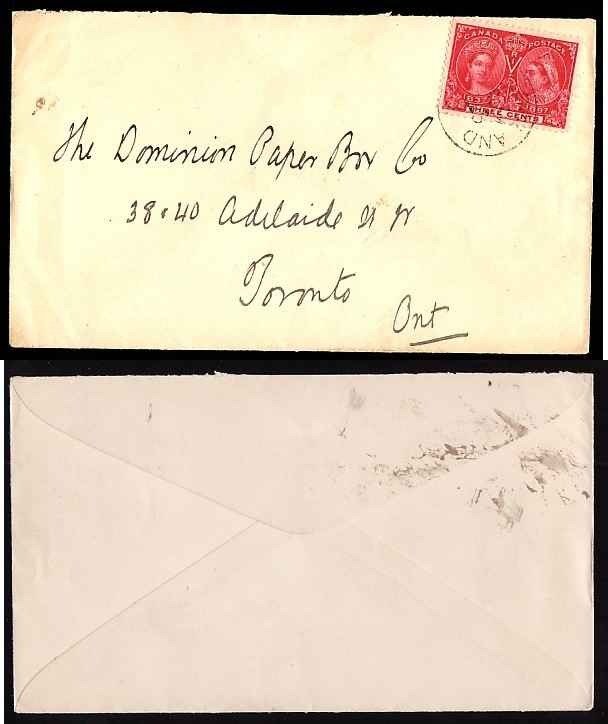 CANADA POSTAGE
1837 1897
THREE CENTS
AND
The Dominion Paper Box Co
38.40 Adelaide St W
Toronto
Ont